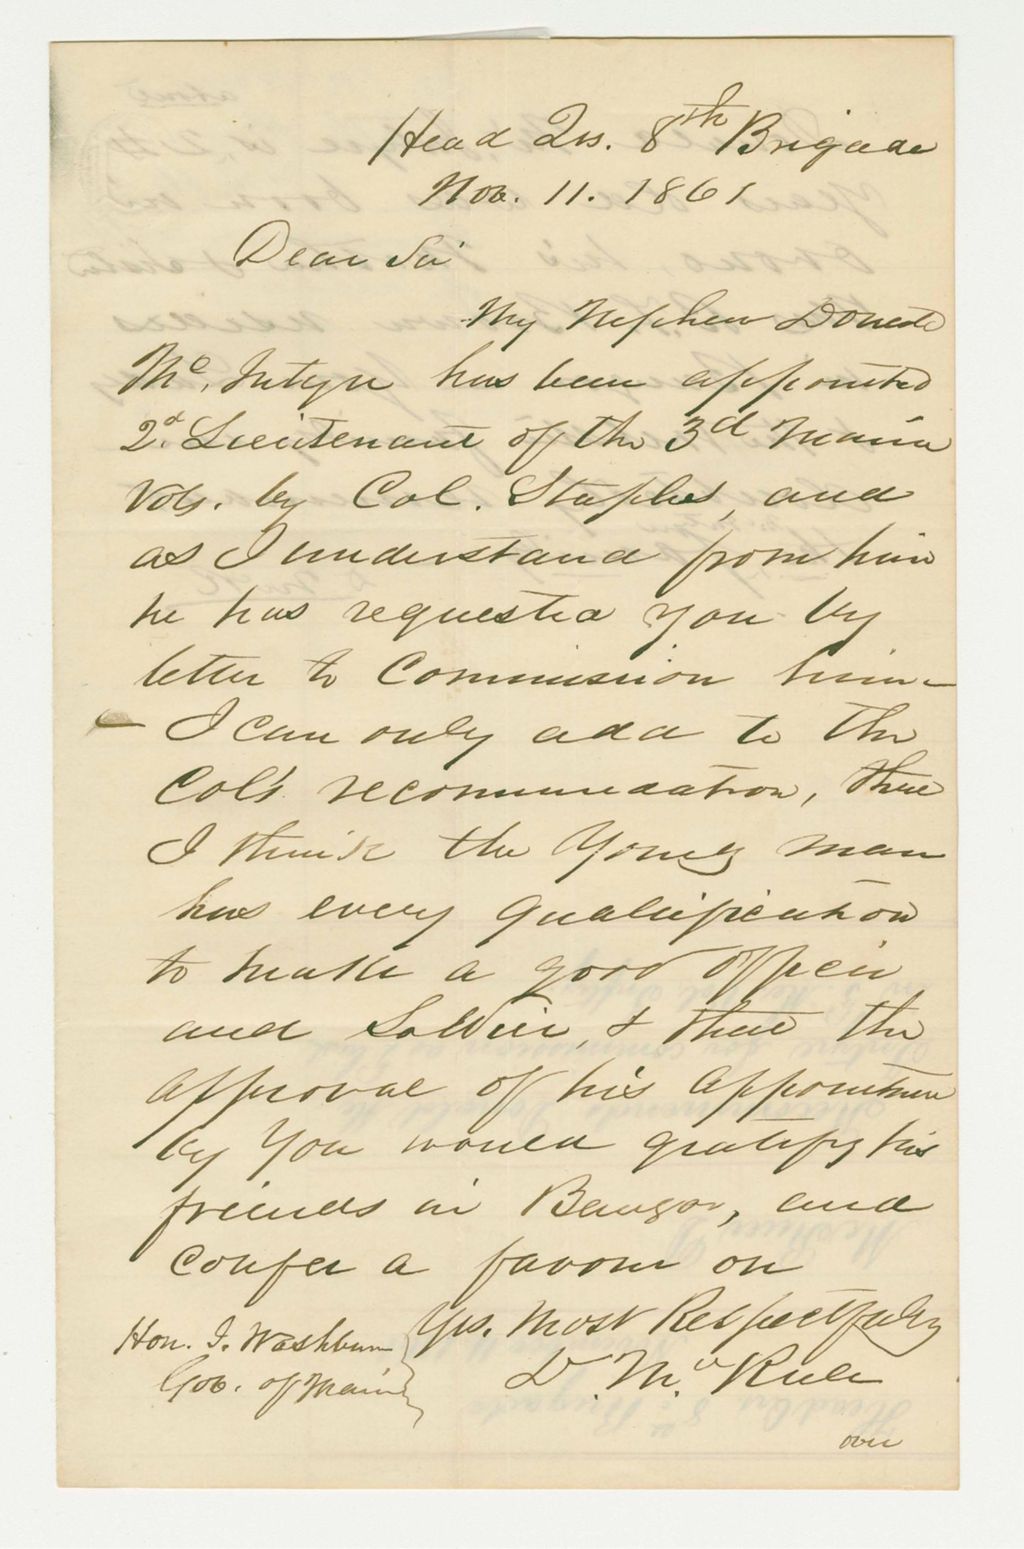 Head Qrs. 8th Brigade
Nov. 11. 1861
Dear Sir
My Nephew Donald
Mc. Intyre has been appointed
2d. Lieutenant of the 3d Maine
Vols. by Col. Staples, and
as I understand from him
he has requested you by
letter to Commission him -
- I can only add to the
Col's recommendation, that
I think the Young man
has every qualification
to make a good officer
and Soldier, & that the
approval of his appointmen
by You would gratify his
friends in Bangor, and
confer a favour on
Yrs. Most Respectfully
D. Mc. Ruer
Hon. I. Washburn
Gov. of Maine
over